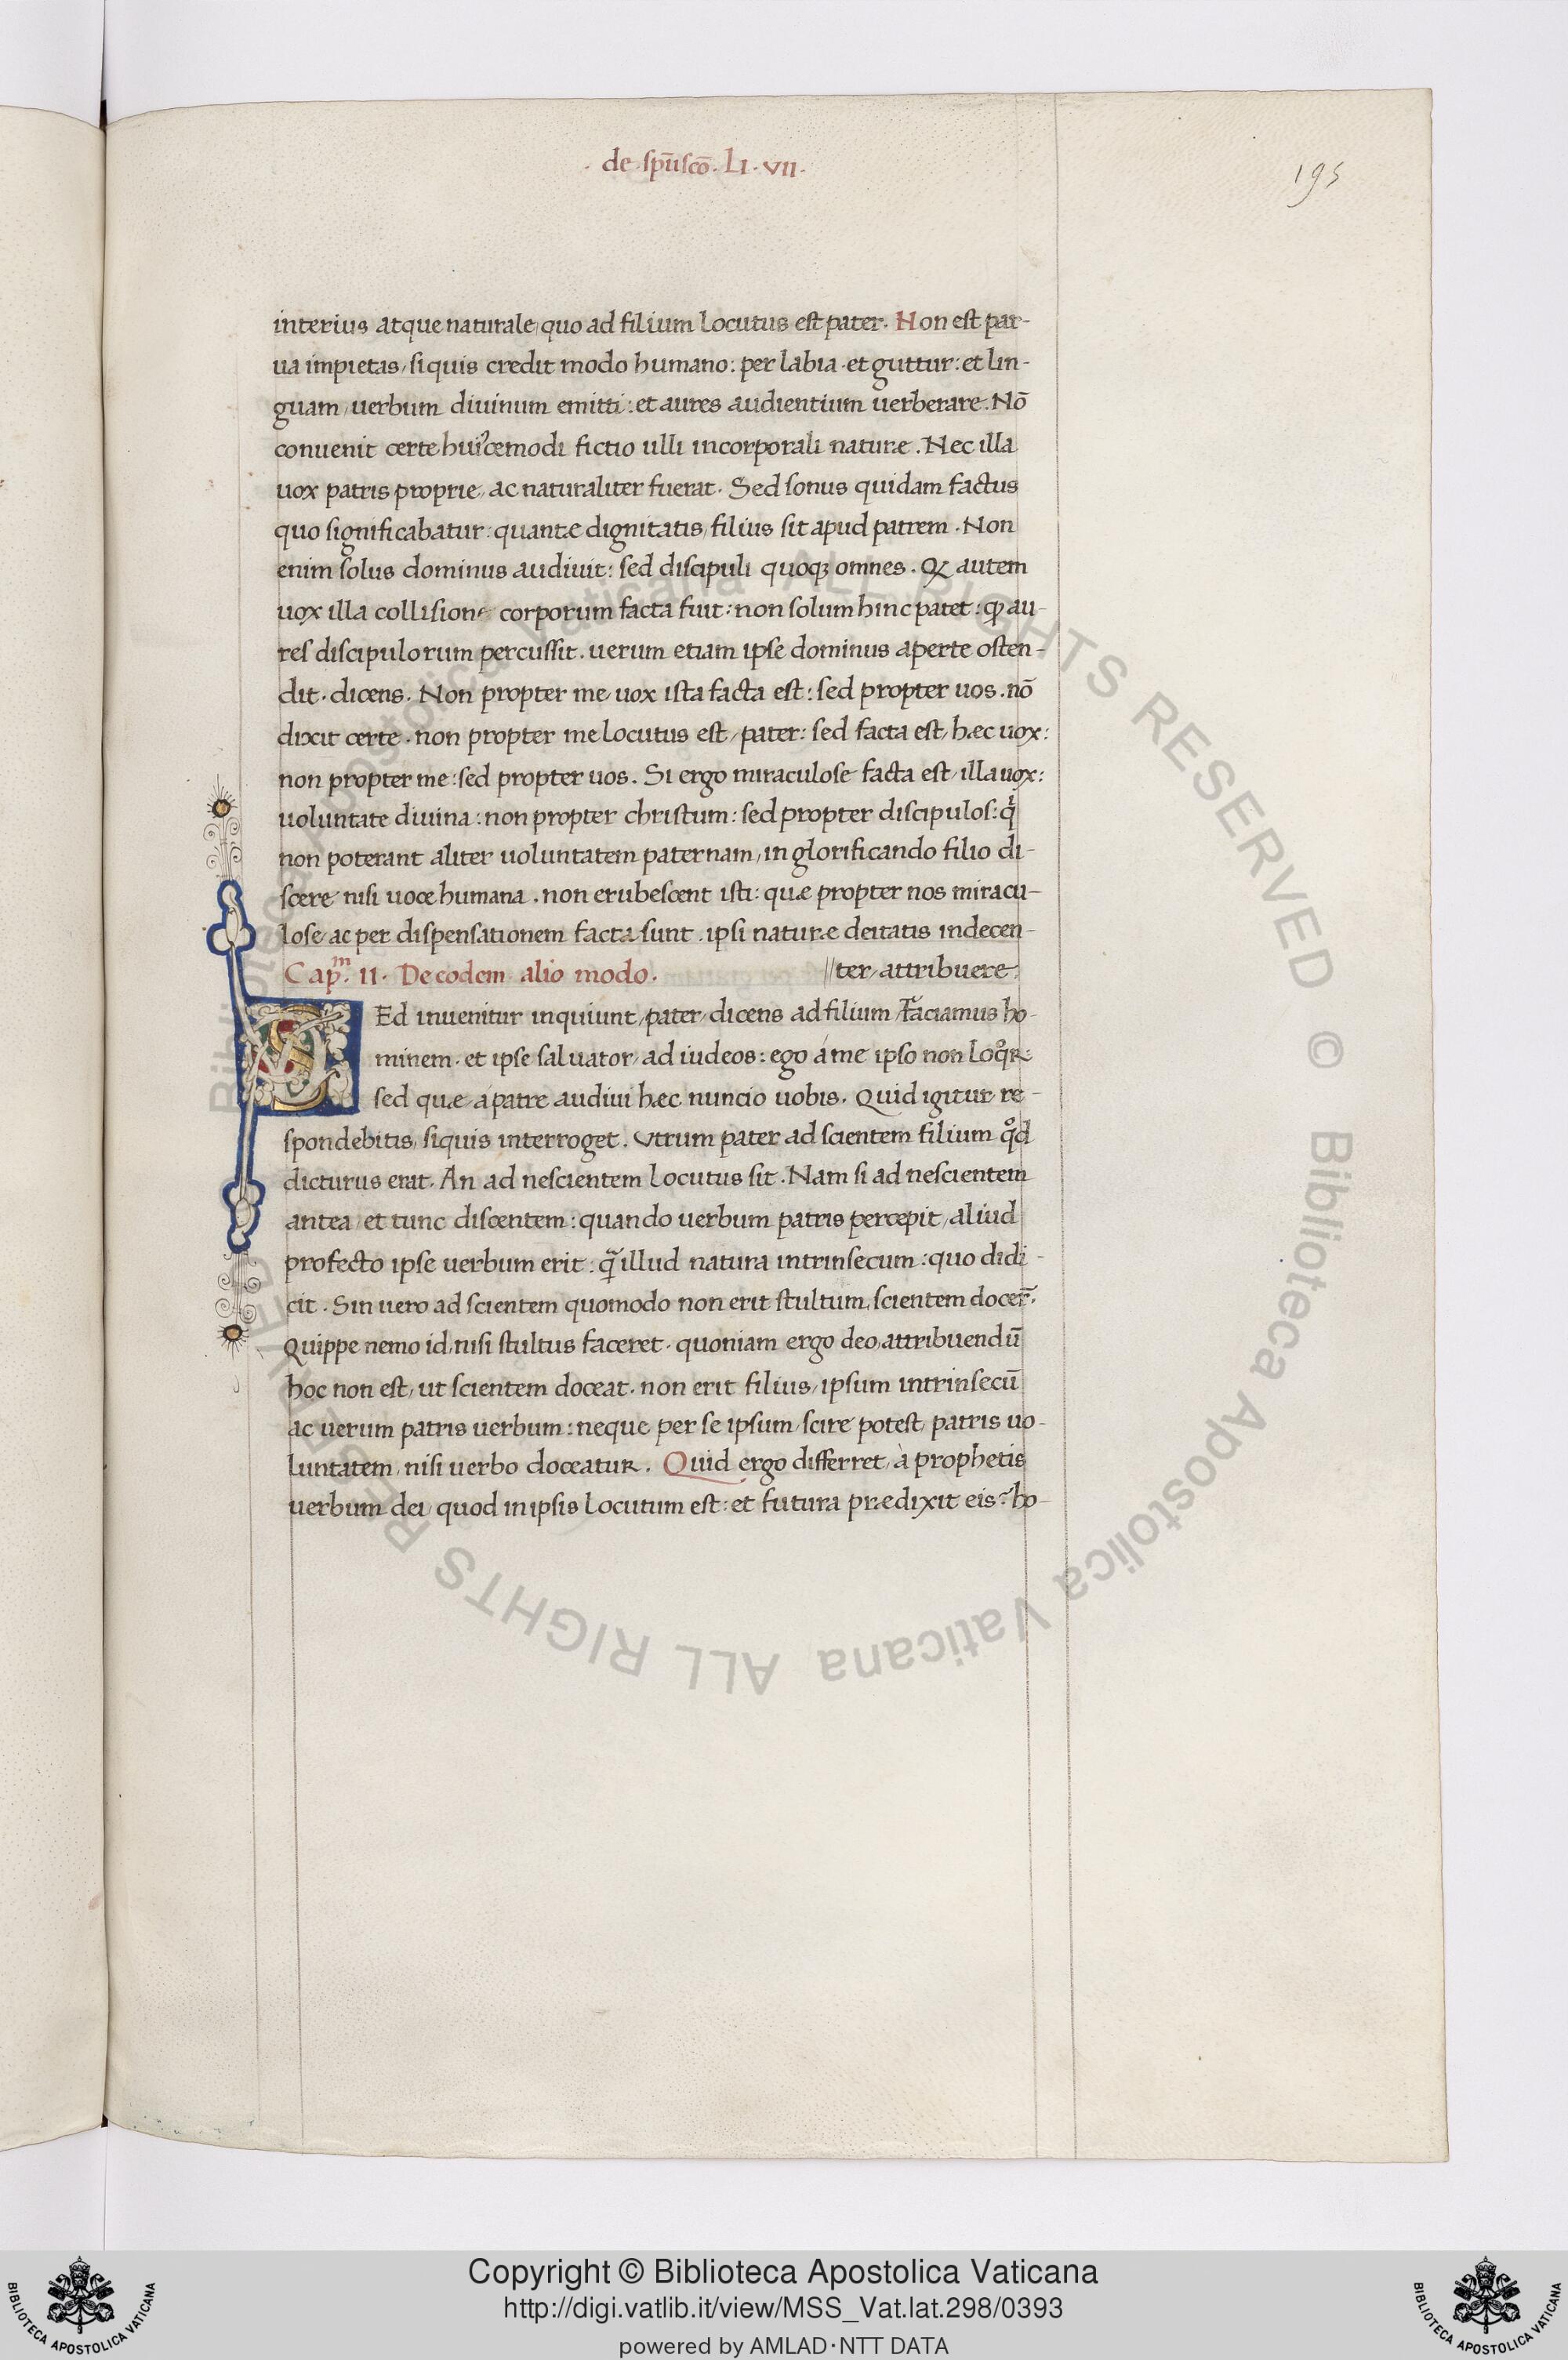 . de spūscō. LI. VII.
195
interius atque naturale, quo ad filium locutus est pater. Non est par-
ua impietas, siquis credit modo humano: per labia. et guttur: et lin-
guam, uerbum diuinum emitti: et aures audientium uerberare. Nō
conuenit certe huicemodi fictio ulli incorporali naturæ. Nec illa
uox patris proprie, ac naturaliter fuerat. Sed sonus quidam factus
quo significabatur: quantæ dignitatis, filius sit apud patrem. Non
enim solus dominus audiuit: sed discipuli quoqꝫ omnes. Qꝫ autem
uox illa collisione corporum facta fuit: non solum hinc patet: ꝙ au-
res discipulorum percussit. uerum etiam ipse dominus aperte osten-
dit. dicens. Non propter me uox ista facta est: sed propter uos. nō
dixit certe. non propter me locutus est, pater: sed facta est, hæc uox:
non propter me: sed propter uos. Si ergo miraculose facta est, illa uox:
uoluntate diuina: non propter christum: sed propter discipulos: qⁱ
non poterant aliter uoluntatem paternam, in glorificando filio di-
scere nisi uoce humana. non erubescent isti: quæ propter nos miracu-
lose, ac per dispensationem facta sunt. ipsi naturæ deitatis indecen-
Cap.ᵐ II. De eodem alio modo. //ter, attribuere.
SEd inuenitur inquiunt, pater, dicens ad filium, Faciamus ho-
minem. et ipse saluator, ad iudeos: ego á me ipso non loqͦꝛ:
sed quæ á patre audiui hæc nuncio uobis. Quid igitur re-
spondebitis, siquis interroget. Vtrum pater ad scientem filium qͦd
dicturus erat. An ad nescientem locutus sit. Nam si ad nescientem
antea, et tunc discentem: quando uerbum patris percepit, aliud
profecto ipse uerbum erit: q̃ illud natura intrinsecum: quo didi-
cit. Sin uero ad scientem quomodo non erit stultum, scientem docer̄.
Quippe nemo id, nisi stultus faceret. quoniam ergo deo, attribuendū
hoc non est, ut scientem doceat. non erit filius, ipsum intrinsecū
ac uerum patris uerbum: neque per se ipsum, scire potest, patris uo-
luntatem, nisi uerbo doceatur. Quid ergo differret, à prophetis
uerbum dei, quod in ipsis locutum est: et futura prædixit eis? ho-
Biblioteca Apostolica Vaticana ALL RIGHTS RESERVED © Biblioteca Apostolica Vaticana ALL RIGHTS RESERVED
Copyright © Biblioteca Apostolica Vaticana
http://digi.vatlib.it/view/MSS_Vat.lat.298/0393
powered by AMLAD·NTT DATA
BIBLIOTECA APOSTOLICA VATICANA
BIBLIOTECA APOSTOLICA VATICANA